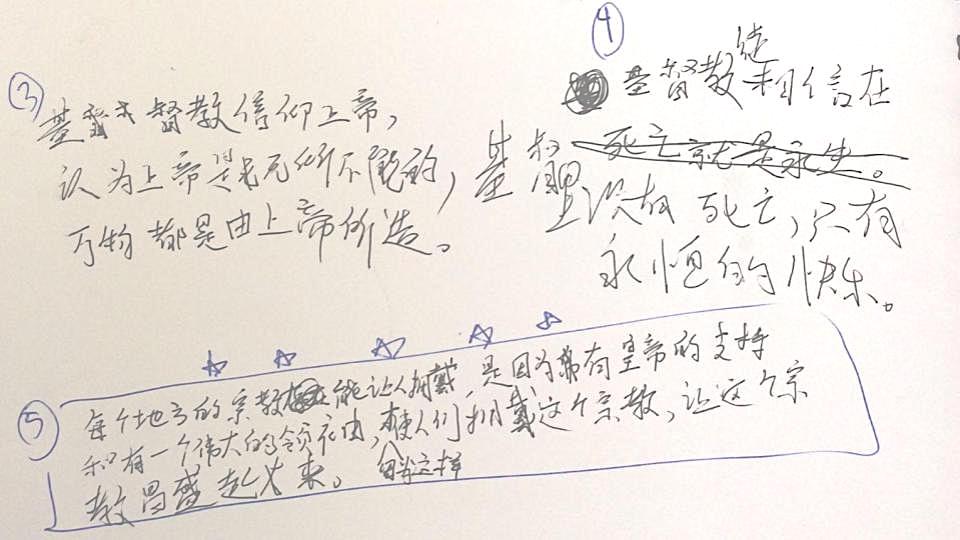 ③
基督教信仰上帝，
认为上帝是无所不能的，
万物都是由上帝所造。
④
徒
基督教相信在
死亡就是永生。
基督里没有死亡，只有
永恒的快乐。
⑤
每个地方的宗教能让人拥戴，是因为有皇帝的支持
和有一个伟大的领袖，使人们拥戴这个宗教，让这个宗
教昌盛起来。
这样